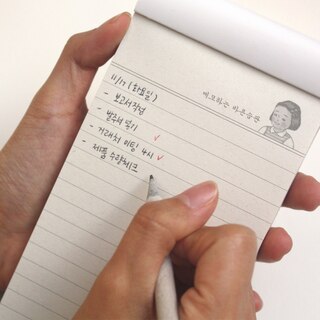 메모하는 바른습관
11/17 (화요일)
- 보고서작성
- 발주서 넣기 ✓
- 거래처 미팅 4시 ✓
- 제품 수량체크